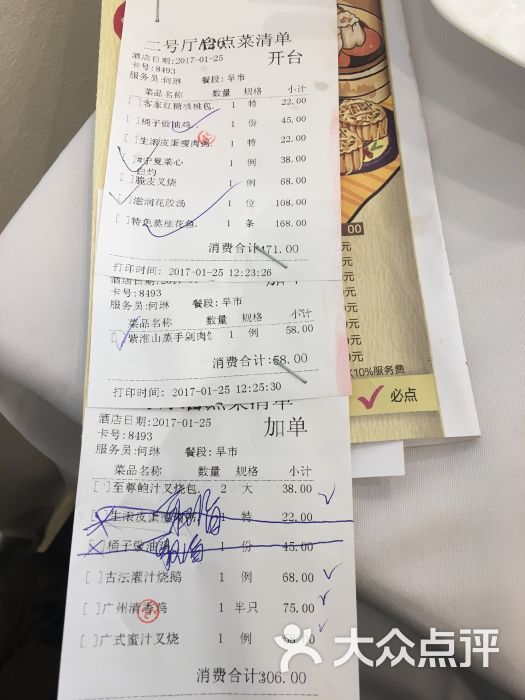 二号厅
点菜清单
酒店日期:2017-01-25
开台
卡号:8493
服务员:何琳 餐段:早市
菜品名称 数量 规格 小计
[ ]客家红糖核桃包. 1 特 22.00
[ ]桶子豉油鸡. 1 份 45.00
[ ]生滚皮蛋瘦肉粥 1 特 22.00
宁夏菜心 1 例 38.00
白灼
[ ]脆皮叉烧 1 例 68.00
[ ]滋润花胶汤 1 位 108.00
[ ]特色蒸桂花鱼. 1 条 168.00
消费合计:471.00
打印时间: 2017-01-25 12:23:26
酒店日期:2017-01-25
加单
卡号:8493
服务员:何琳 餐段:早市
菜品名称 数量 规格 小计
紫淮山蒸手剁肉饼 1 例 58.00
消费合计:58.00
打印时间: 2017-01-25 12:25:30
点菜清单
酒店日期:2017-01-25
加单
卡号:8493
服务员:何琳 餐段:早市
菜品名称 数量 规格 小计
[ ]至尊鲍汁叉烧包. 2 大 38.00
[ ]生滚皮蛋瘦肉粥 1 特 22.00
[ ]桶子豉油鸡 1 份 45.00
[ ]古坛灌汁烧鹅 1 例 68.00
[ ]广州清香鸡 1 半只 75.00
[ ]广式蜜汁叉烧 1 例
消费合计:306.00
00
元
元
元
元
元
元
元
10%服务费
必点
大众点评